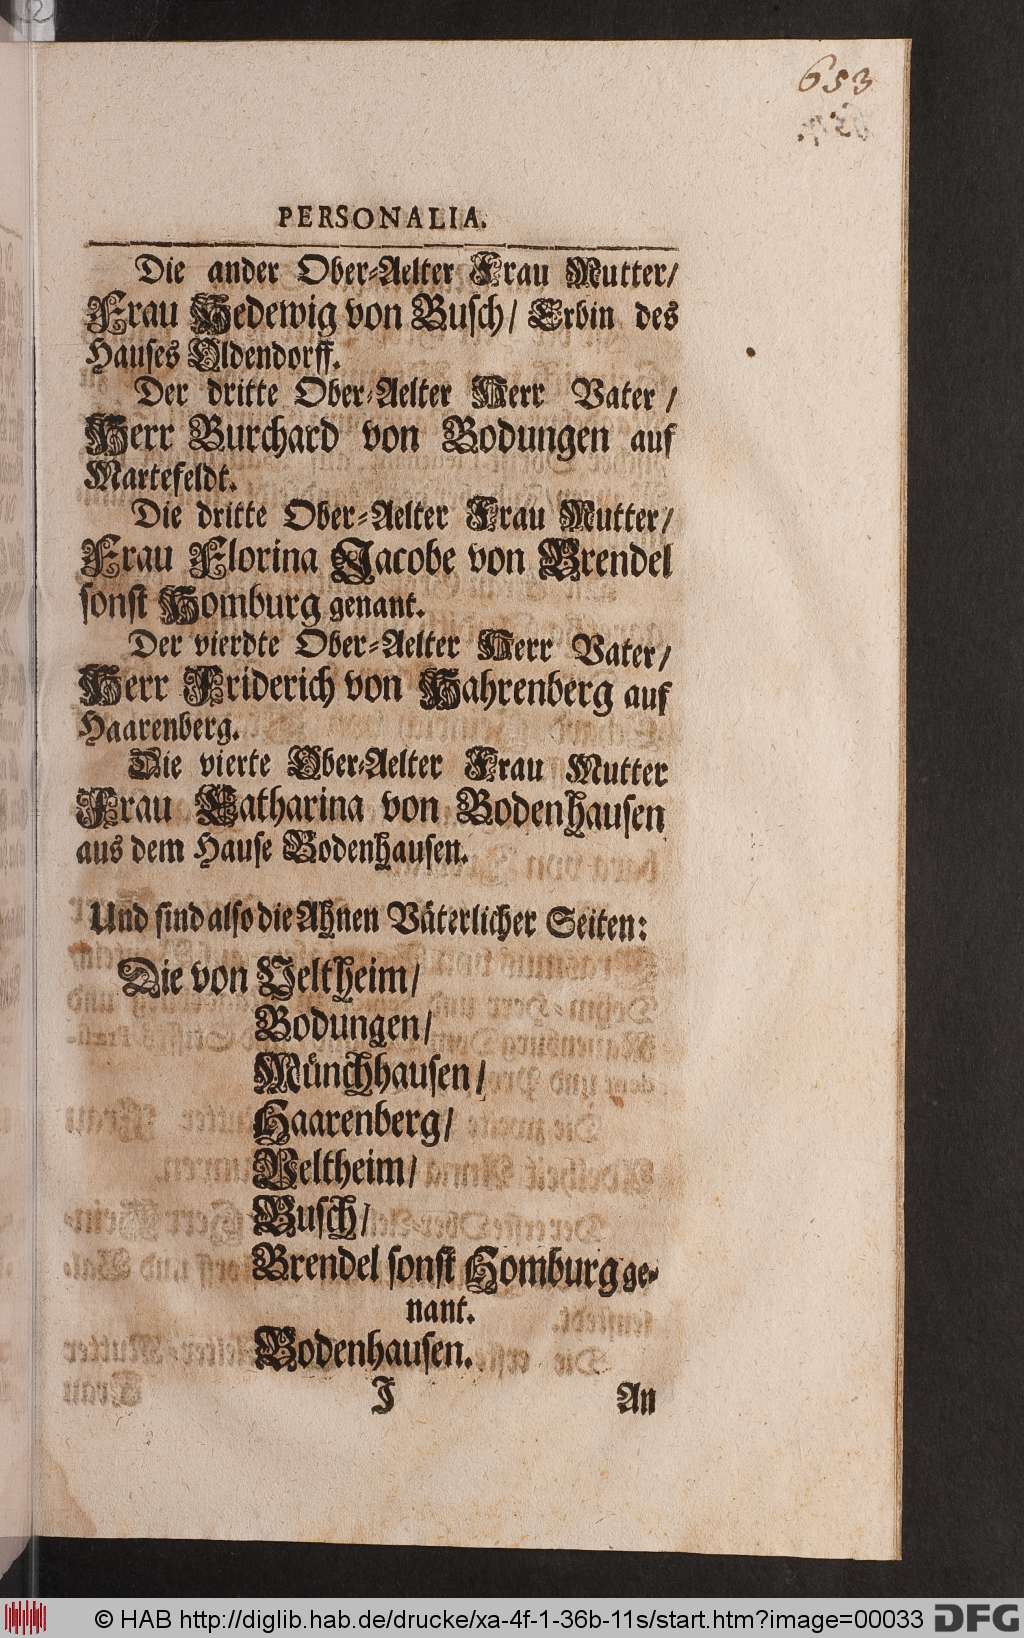 653
PERSONALIA.
Die ander Ober-Aelter Frau Mutter/
Frau Hedewig von Busch/ Erbin des
Hauses Oldendorff.
Der dritte Ober-Aelter Herr Vater/
Herr Burchard von Bodungen auf
Martefeldt.
Die dritte Ober-Aelter Frau Mutter/
Frau Florina Jacobe von Brendel
sonst Homburg genant.
Der vierdte Ober-Aelter Herr Vater/
Herr Friderich von Hahrenberg auf
Haarenberg.
Die vierte Ober-Aelter Frau Mutter
Frau Catharina von Bodenhausen
aus dem Hause Bodenhausen.
Und sind also die Ahnen Väterlicher Seiten:
Die von Veltheim/
Bodungen/
Münchhausen/
Haarenberg/
Veltheim/
Busch/
Brendel sonst Homburg ge-
nant.
Bodenhausen.
J An
© HAB http://diglib.hab.de/drucke/xa-4f-1-36b-11s/start.htm?image=00033 DFG